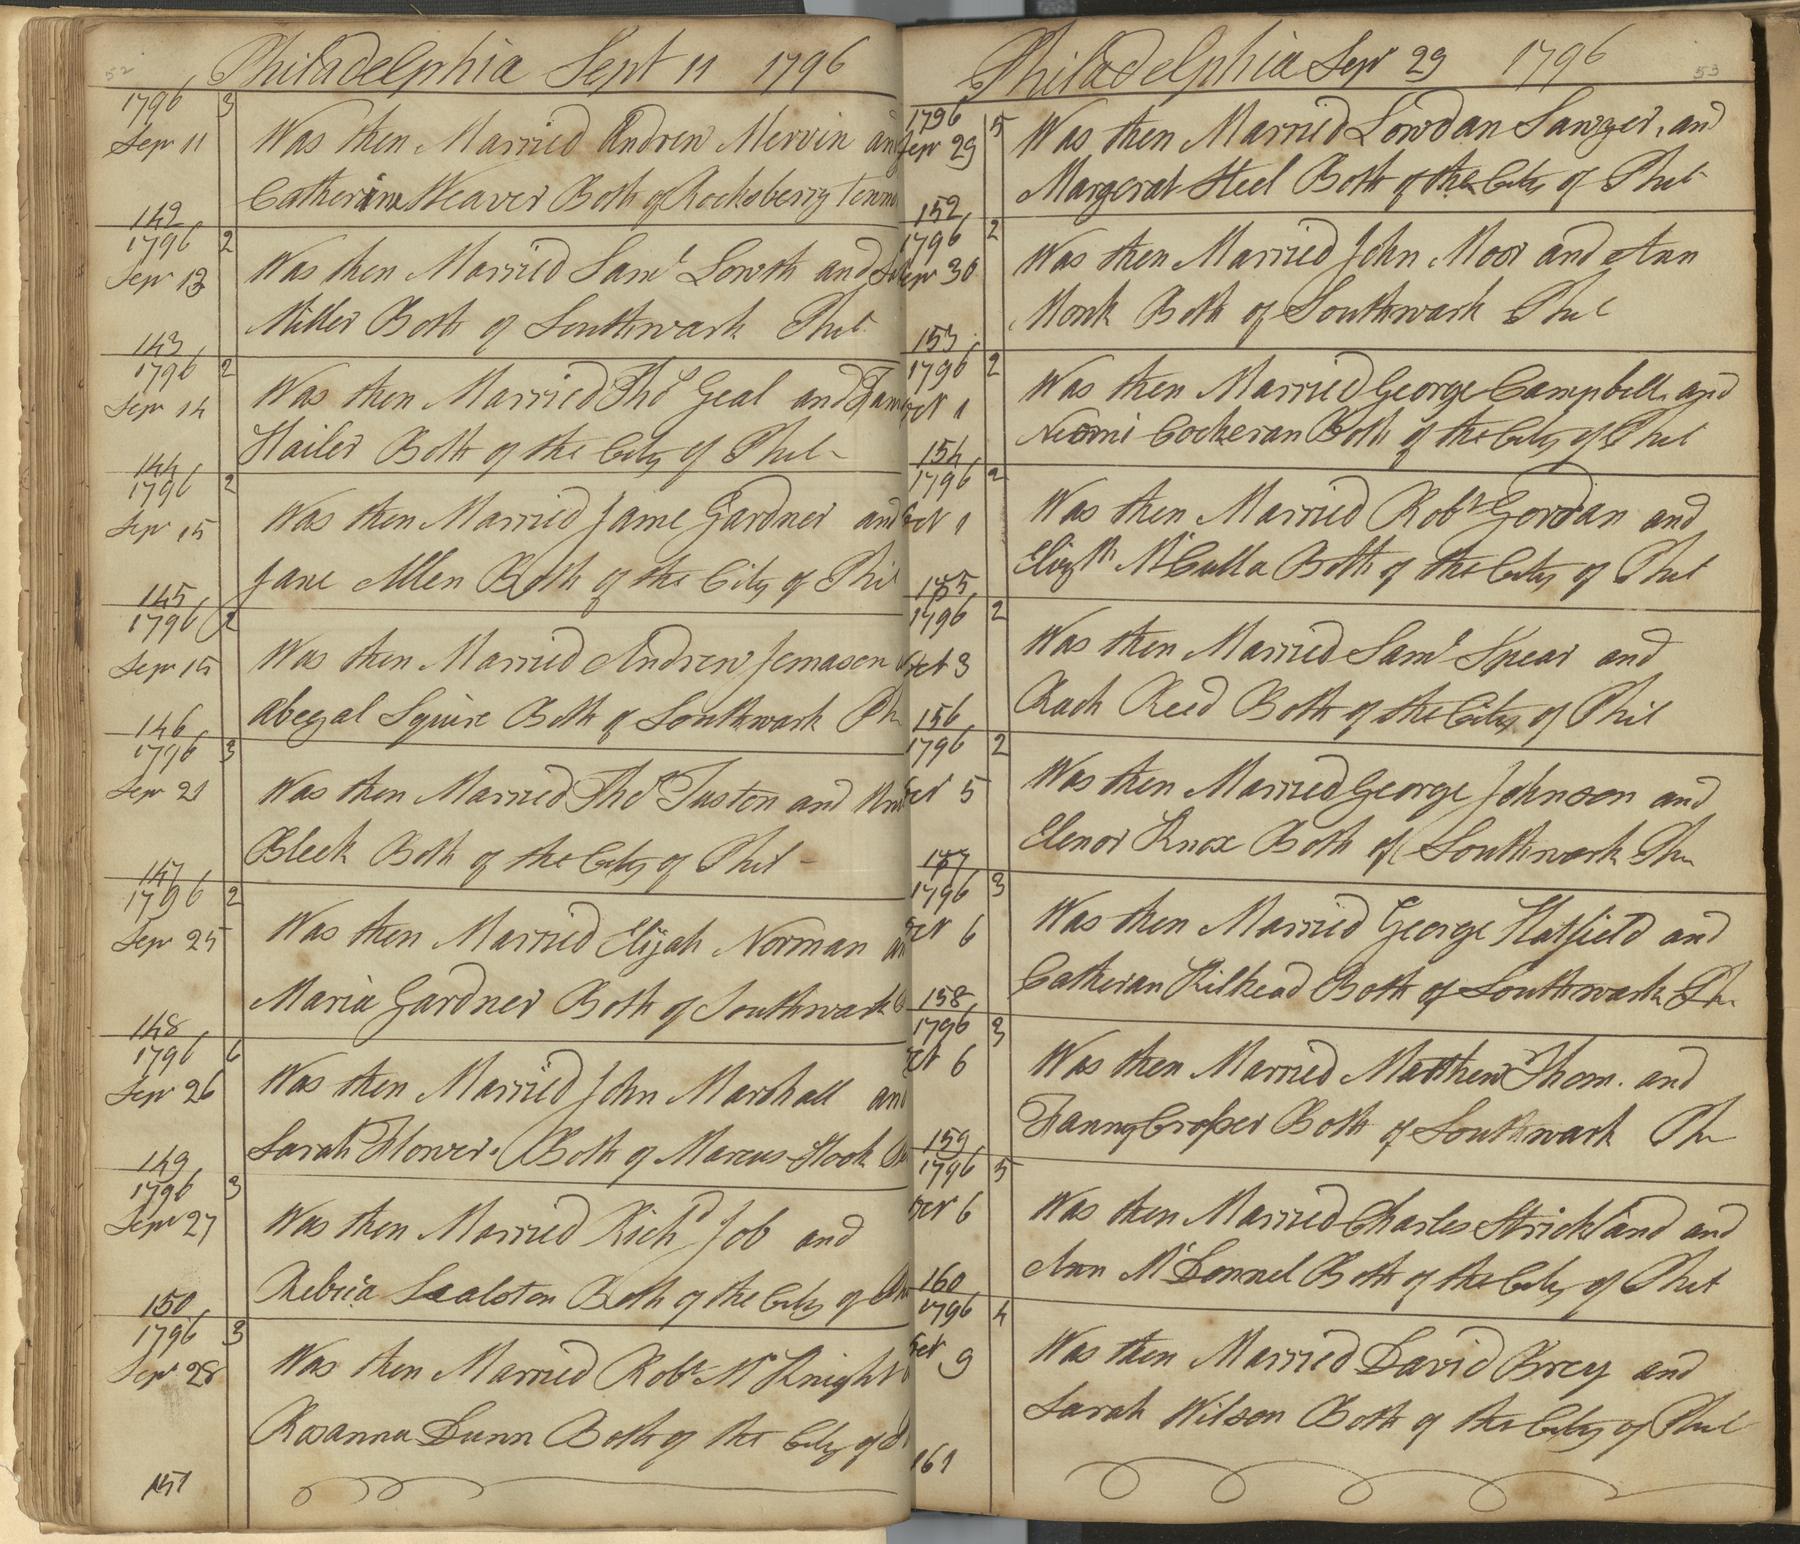 52
Philadelphia Sept 11 1796
1796 3
Sepr 11 Was then Married Andrew Mervin and
Catherina Weaver Both of Rocksberry Town
142
1796 2
Sepr 13 Was then Married Saml Lowth and
Miller Both of Southwark Phil
143
1796 2
Sepr 14 Was then Married Thos Geal and
Hailer Both of the City of Phil
144
1796 2
Sepr 15 Was then Married Jame Gardner and
Jane Allen Both of the City of Phil
145
1796 2
Sepr 15 Was then Married Andrew Jemason
Abegal Squire Both of Southwark Ph
146
1796 3
Sepr 21 Was then Married Thos Tuston and
Bleek Both of the City of Phil
147
1796 2
Sepr 25 Was then Married Elijah Norman an
Maria Gardner Both of Southwark
148
1796 6
Sepr 26 Was then Married John Marshall and
Sarah Flower. Both of Marcus Hook
149
1796 3
Sepr 27 Was then Married Richd Job and
Rebcia Sealston Both of the City of Phi
150
1796 3
Sepr 28 Was then Married Robt McKnight
Rosanna Dunn Both of the City of
151
53
Philadelphia Sepr 29 1796
1796 5
Sepr 29 Was then Married Lowdan Sawyer, and
Margerat Steel Both of the City of Phil
152
1796 2
Sepr 30 Was then Married John Moor and Ann
Monk Both of Southwark Phil
153
1796 2
Oct 1 Was then Married George Campbell and
Neomi Cockeran Both of the City of Phil
154
1796 2
Oct 1 Was then Married Robt Gordan and
Elizth McCulla Both of the City of Phil
155
1796 2
Oct 3 Was then Married Saml Spear and
Rach Reed Both of the City of Phil
156
1796 2
Oct 5 Was then Married George Johnson and
Elenor Knox Both of Southwark Phi
157
1796 3
Oct 6 Was then Married George Hatfield and
Catheran Kilhead Both of Southwark Ph
158
1796 3
Oct 6 Was then Married Matthew Thom. and
Fanny Crosser Both of Southwark Ph
159
1796 5
Oct 6 Was then Married Charles Strickland and
Ann McDonnel Both of the City of Phil
160
1796 4
Oct 9 Was then Married David Brey and
Sarah Wilson Both of the City of Phil
161